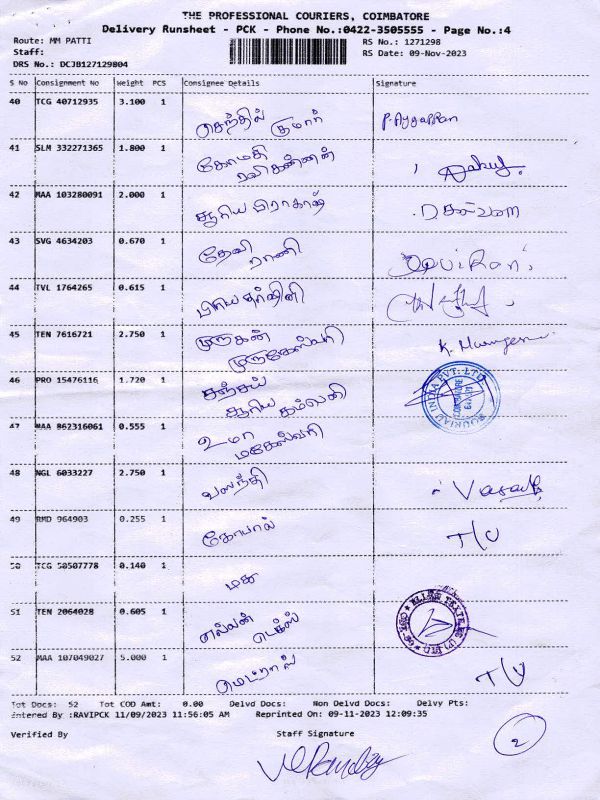 THE PROFESSIONAL COURIERS, COIMBATORE
Delivery Runsheet - PCK - Phone No.:0422-3505555 - Page No.:4
Route: MM PATTI RS No.: 1271298
Staff: RS Date: 09-Nov-2023
DRS No.: DCJB127129804
S No Consignment No Weight PCS Consignee Details Signature
40 TCG 40712935 3.100 1 செந்தில் குமார் P. Ayyappan
41 SLM 332271365 1.800 1 கோமதி
ரவிகண்ணன்
42 MAA 103280091 2.000 1 சூரிய பிரகாஷ்
43 SVG 4634203 0.670 1 தேவி
ராணி DeviRani
44 TVL 1764265 0.615 1 பிரியதர்ஷினி
45 TEN 7616721 2.750 1 முருகன்
முருகேஸ்வரி K. Murugesan
46 PRO 15476116 1.720 1 சஞ்சய்
சூரிய
INDIA PVT. LTD
COIMBATORE
47 MAA 862316061 0.555 1 உமா
மகேஸ்வரி
48 NGL 6033227 2.750 1 வசந்தி
49 RMD 964903 0.255 1 கோபால் T/U
50 TCG 50507778 0.140 1
51 TEN 2064028 0.605 1 எல்வன் டெக்ஸ்
52 MAA 107049027 5.000 1 மெட்ராஸ் T/U
Tot Docs: 52 Tot COD Amt: 0.00 Delvd Docs: Non Delvd Docs: Delvy Pts:
Entered By :RAVIPCK 11/09/2023 11:56:05 AM Reprinted On: 09-11-2023 12:09:35
Verified By Staff Signature 2